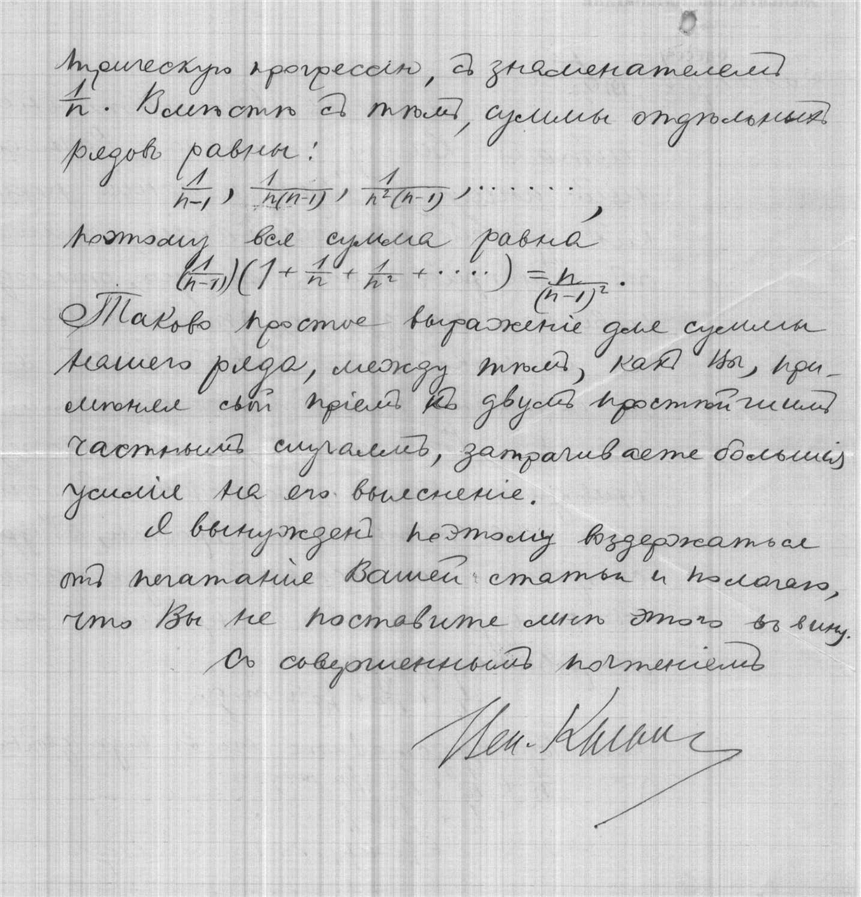 трическую прогрессію, съ знаменателемъ
1/n. Вмѣстѣ съ тѣмъ, суммы отдѣльныхъ
рядовъ равны:
1/(n-1), 1/(n(n-1)), 1/(n²(n-1)), . . . . . . ,
поэтому вся сумма равна
(1/(n-1))(1 + 1/n + 1/n² + ....) = n/(n-1)².
Таково простое выраженіе для суммы
нашего ряда, между тѣмъ, какъ Вы, при-
мѣняя свой пріемъ къ двумъ простѣйшимъ
частнымъ случаямъ, затрачиваете большія
усилія на его выясненіе.
Я вынужденъ поэтому воздержаться
отъ печатанія Вашей статьи и полагаю,
что Вы не поставите мнѣ этого въ вину.
Съ совершеннымъ почтеніемъ